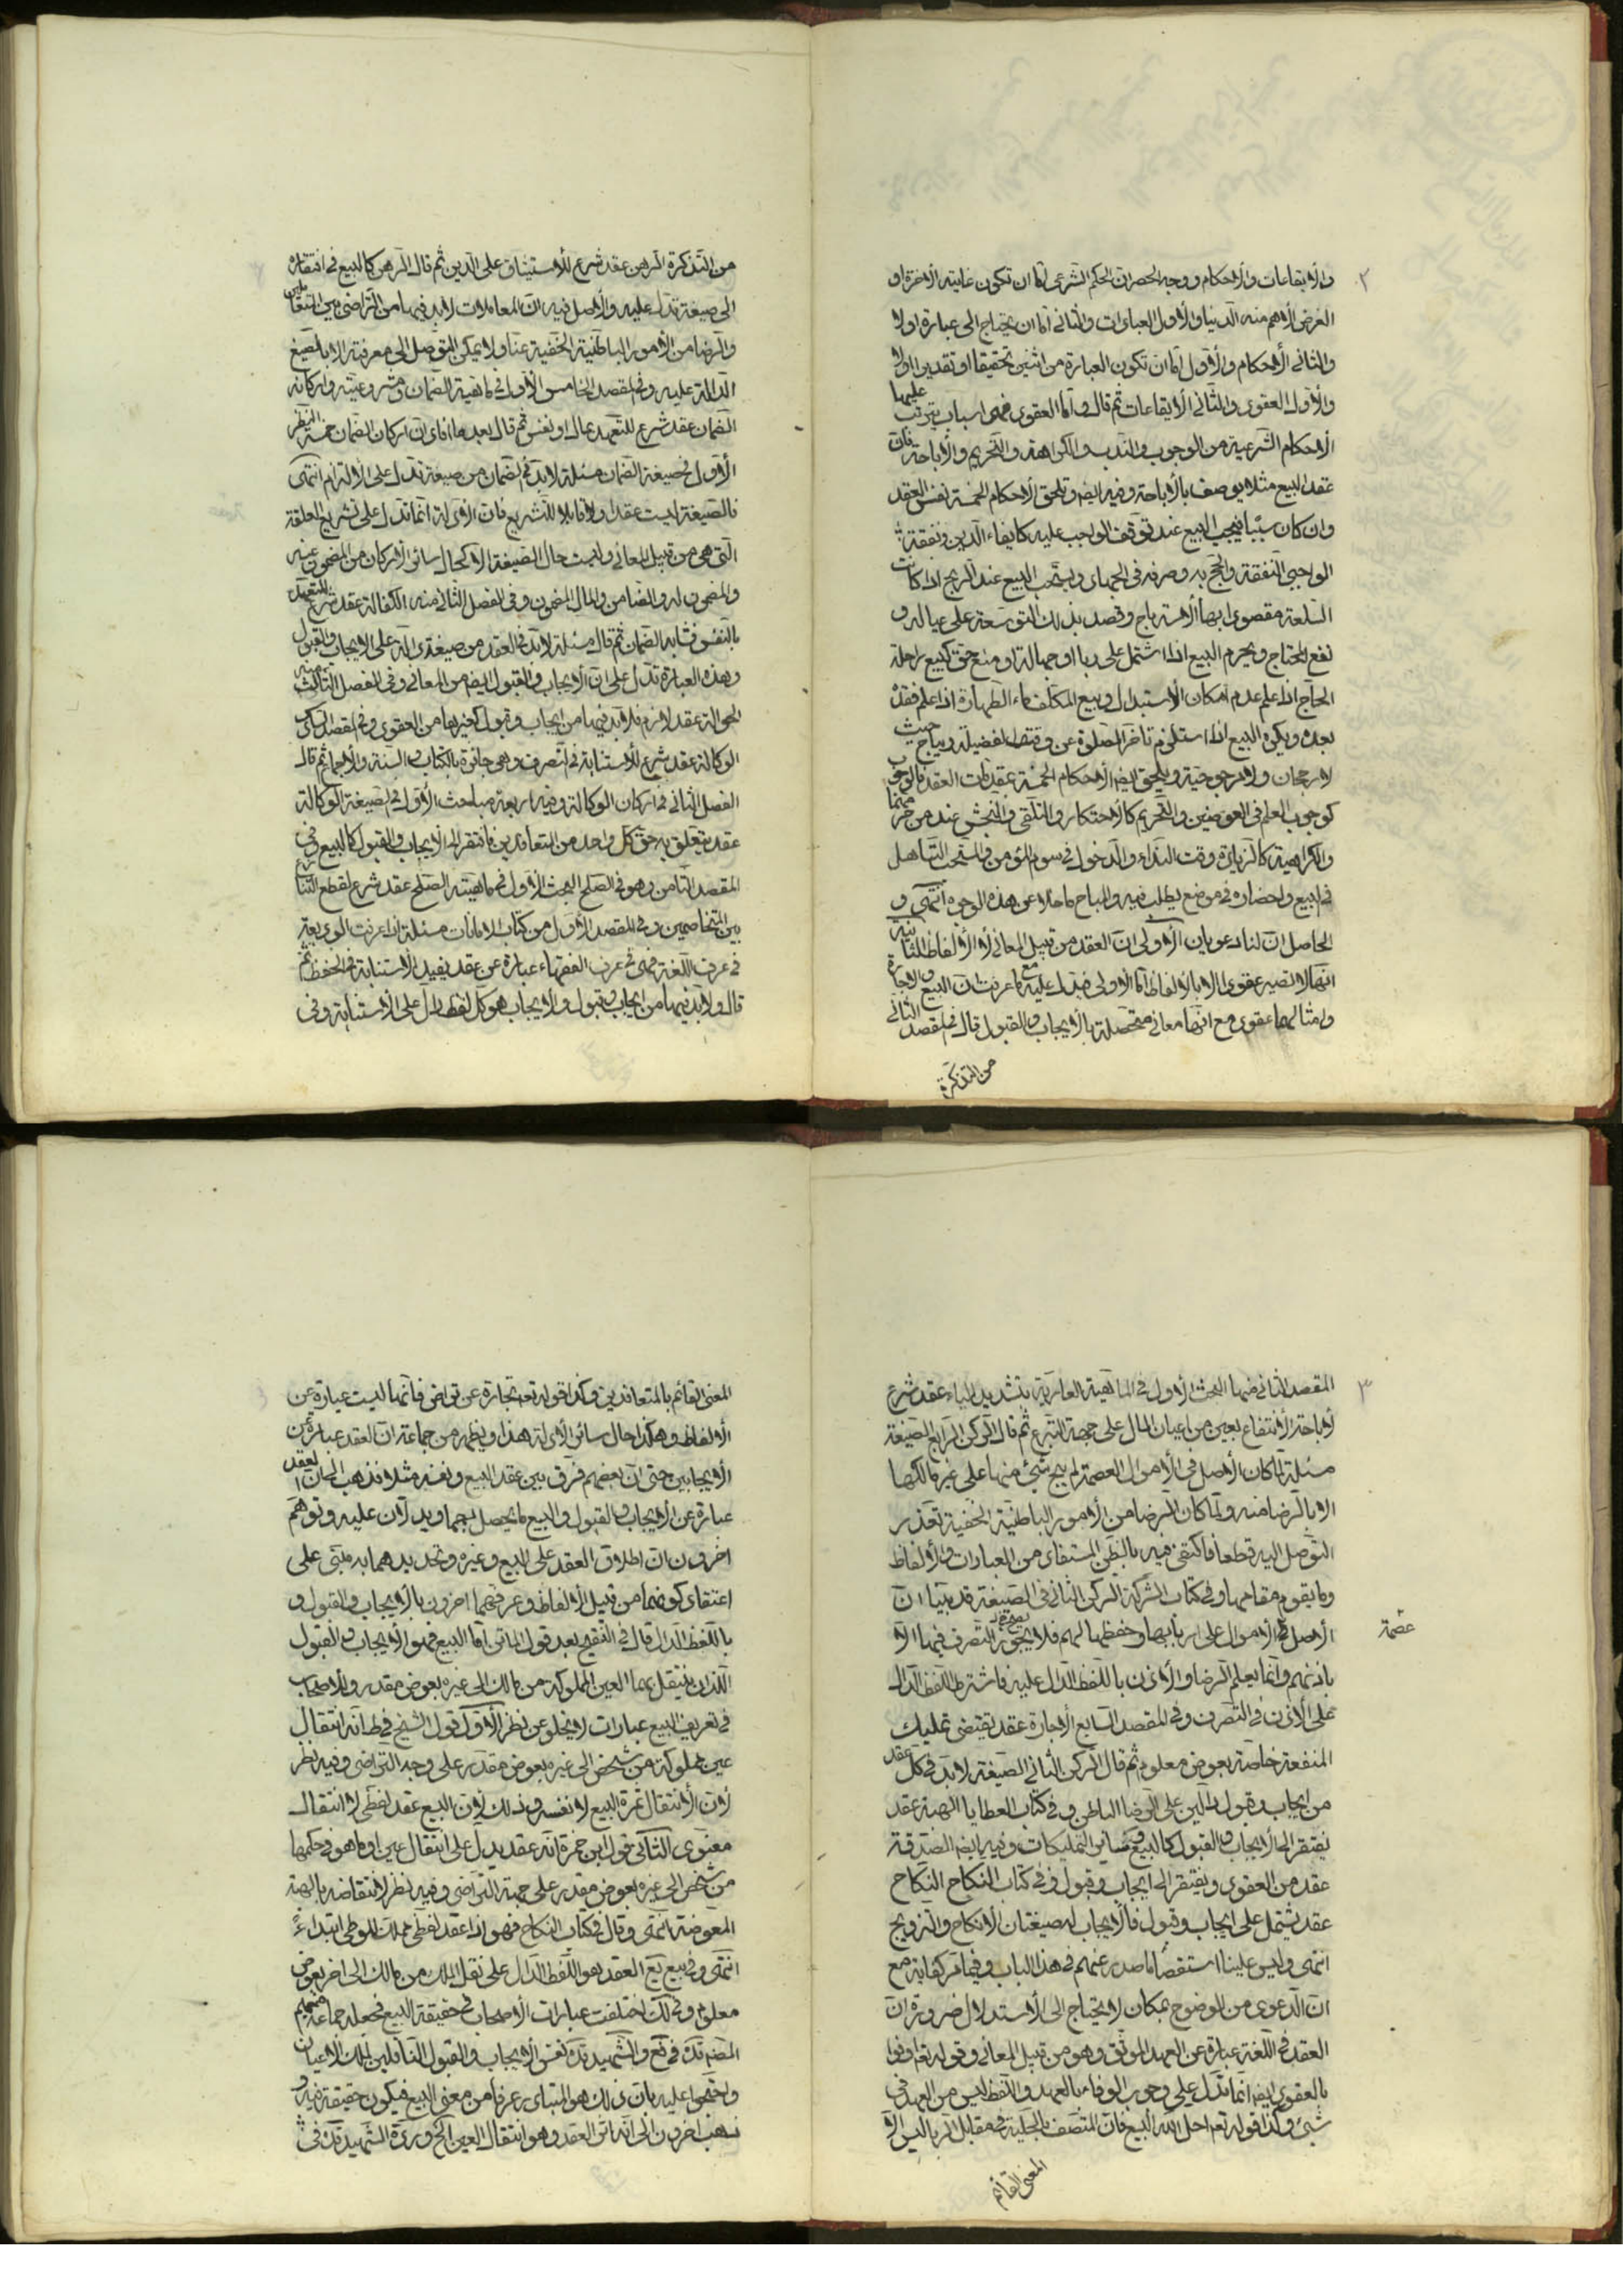 ٢
والايقاعات والاحكام ووجه الحصر ان الحكم الشرعى اما ان تكون غايته الاخرة او
الغرض الاهم منه الدنيا والاول العبادات والثانى اما ان يحتاج الى عبارة او لا
والثانى الاحكام والاول اما ان تكون العبارة من اثنين تحقيقا او تقديرا او لا
والاول العقود والثانى الايقاعات ثم قال واما العقود فهى اسباب يترتب عليها
الاحكام الشرعية من الوجوب والندب والكراهة والتحريم والاباحة فان
عقد البيع مثلا يوصف بالاباحة وفيه ايضا وتلحق الاحكام الخمسة نفس العقد
وان كان سببا فيجب البيع عند توقف الواجب عليه كايفاء الدين ونفقة
الواجبى النفقة والحج به وصرفه فى الجهاد ويستحب البيع عند الربح اذا كانت
السلعة مقصود ابها الاسترباح وقصد بذلك التوسعة على عياله و
نفع المحتاج ويحرم البيع اذا اشتمل على ربا او جهالة او منع حق كبيع راحلة
الحاج اذا علم عدم امكان الاستبدال وبيع المكلف ماء الطهارة اذا علم فقده
بعده ويكره البيع اذا استلزم تاخر الصلوة عن وقت الفضيلة ويباح حيث
لا رجحان ولا مرجوحية ويلحق ايضا الاحكام الخمسة بمقدمات العقد فالوجوب
كوجوب العلم فى العوضين والتحريم كالاحتكار والتلقى والنجش عند من حرمهما
والكراهية كالزيادة وقت النداء والدخول فى سوم المؤمن والمستحب التساهل
فى البيع واحضاره فى موضع يطلب فيه والمباح ما خلا عن هذه الوجوه انتهى و
الحاصل ان لنا دعويان الاولى ان العقد من قبيل المعانى لا الالفاظ الثانية
انها لا تصير عقودا الا بالالفاظ اما الاولى فيدل عليه ما عرفت ان البيع والاجارة
وامثالهما عقود مع انها معانى متحصلة بالايجاب والقبول قال فى المقصد الثانى
من التذكرة
من التذكرة الرهن عقد شرع للاستيثاق على الدين ثم قال الرهن كالبيع فى افتقاره
الى صيغة تدل عليه والاصل فيه ان المعاملات لابد فيها من التراضى بين المتعاملين
والرضا من الامور الباطنية الخفية عنا ولا يمكن التوصل الى معرفته الا بالصيغ
الدالة عليه وفى المقصد الخامس الاول فى ماهية الضمان ومشروعيته واركانه
الضمان عقد شرع للتعهد بمال او نفس ثم قال بعد ما افاد ان اركان الضمان خمسة النظر
الاول فى صيغة الضمان مسئلة لابد فى الضمان من صيغة تدل على الالتزام انتهى
فالصيغة ليست عقدا ولا قابلا للتشريع فان الادلة انما تدل على تشريع العلقة
التى هى من قبيل المعانى وليست حال الصيغة الا كحال سائر الاركان من المضمون عنه
والمضمون له والضامن والمال المضمون وفى الفصل الثانى منه الكفالة عقد شرع للتعهد
بالنفس فشابه الضمان ثم قال مسئلة لابد فى العقد من صيغة دالة على الايجاب والقبول
وهذه العبارة تدل على ان الايجاب والقبول ايضا من المعانى وفى الفصل الثالث منه
الحوالة عقد لازم فلابد فيها من ايجاب وقبول كغيرها من العقود وفى المقصد السادس
الوكالة عقد شرع للاستنابة فى التصرف وهى جائزة بالكتاب والسنة والاجماع ثم قال
الفصل الثانى فى اركان الوكالة وفيه اربعة مباحث الاول فى الصيغة الوكالة
عقد يتعلق به حق كل واحد من المتعاقدين فافتقر الى الايجاب والقبول كالبيع وفى
المقصد الثامن وهو فى الصلح البحث الاول فى ماهيته الصلح عقد شرع لقطع التنازع
بين المتخاصمين وفى المقصد الاول من كتاب الامانات مسئلة اذا عرفت الوديعة
فى عرف اللغة فهى فى عرف الفقهاء عبارة عن عقد يفيد الاستنابة فى الحفظ ثم
قال ولابد فيها من ايجاب وقبول والايجاب هو كل لفظ دال على الاستنابة وفى
٣
المقصد الثانى منها البحث الاول فى الماهية العارية بتشديد الياء عقد شرع
لاباحة الانتفاع بعين من اعيان المال على جهة التبرع ثم قال الركن الرابع الصيغة
مسئلة لما كان الاصل فى الاموال العصمة لم يبح شئ منها على غير مالكها
الا بالرضا منه ولما كان الرضا من الامور الباطنية الخفية تعذر
التوصل اليه قطعا فاكتفى فيه بالظن المستفاد من العبارات والالفاظ
وما يقوم مقامهما وفى كتاب الشركة الركن الثانى فى الصيغة قد بينا ان
الاصل فى الاموال على اربابها وحفظها لهم فلا يجوز التصرف فيها الا
عصمة
باذنهم وانما يعلم الرضا والاذن باللفظ الدال عليه فاشترط اللفظ الدال
على الاذن فى التصرف وفى المقصد السابع الاجارة عقد تقتضى تمليك
المنفعة خاصة بعوض معلوم ثم قال الركن الثانى الصيغة لابد فى كل عقد
من ايجاب وقبول دالين على الرضا الباطن وفى كتاب العطايا الهبة عقد
يفتقر الى الايجاب والقبول كالبيع وسائر التمليكات وفيه ايضا الصدقة
عقد من العقود ويفتقر الى ايجاب وقبول وفى كتاب النكاح النكاح
عقد يشتمل على ايجاب وقبول فالايجاب له صيغتان الانكاح والتزويج
انتهى وليس علينا استقصاء ما صدر عنهم فى هذا الباب وفيما مر كفاية مع
ان الدعوى من الوضوح بمكان لا يحتاج الى الاستدلال ضرورة ان
العقد فى اللغة عبارة عن العهد الموثق وهو من قبيل المعانى وقوله تعم اوفوا
بالعقود ايضا انما تدل على وجوب الوفاء بالعهد واللفظ ليس من العهد فى
شئ وكذا قوله تعم احل الله البيع فان المتصف بالحلية فى مقابل الربا ليس الا
المعنى القائم
المعنى القائم بالمتعاقدين وكذا قوله تعم تجارة عن تراض فانها ليست عبارة عن
الالفاظ وهكذا حال سائر الادلة هذا ويظهر من جماعة ان العقد عبارة عن
الايجابين حتى ان بعضهم فرق بين عقد البيع ونفسه مثلا فذهب الى ان العقد
عبارة عن الايجاب والقبول والبيع ما يحصل بهما ويدلان عليه وتوهم
اخرون ان اطلاق العقد على البيع وغيره وتحديدهما به مبتنى على
اعتقاد كونهما من قبيل الالفاظ وعرفهما اخرون بالايجاب والقبول و
باللفظ الدال قال فى التنقيح بعد قول الماتن اما البيع فهو الايجاب والقبول
اللذان ينتقل بهما العين المملوكة من مالك الى غيره بعوض مقدر وللاصحاب
فى تعريف البيع عبارات لا تخلو عن نظر الاول قول الشيخ فى ط انه انتقال
عين مملوكة من شخص الى غيره بعوض مقدر على وجه التراضى وفيه نظر
لان الانتقال ثمرة البيع لا نفسه وذلك لان البيع عقد لفظى لا انتقال
معنوى الثانى قول ابن حمزة انه عقد يدل على انتقال عين او ما هو فى حكمها
من شخص الى غيره بعوض مقدر على جهة التراضى وفيه نظر لانتقاضه بالهبة
المعوضة انتهى وقال فى كتاب النكاح فهو اذا عقد لفظى مملك للوطى ابتداء
انتهى وفى بيع يع العقد هو اللفظ الدال على نقل الملك من مالك الى اخر بعوض
معلوم وفى لك اختلفت عبارات الاصحاب فى حقيقة البيع فجعله جماعة منهم
المصنف قده فى فع والشهيد قده نفس الايجاب والقبول الناقلين لملك الاعيان
واحتجوا عليه بان ذلك هو المتبادر عرفا من معنى البيع فيكون حقيقة فيه و
ذهب اخرون الى انه اثر العقد وهو انتقال العين الخ ورده الشهيد قده فى